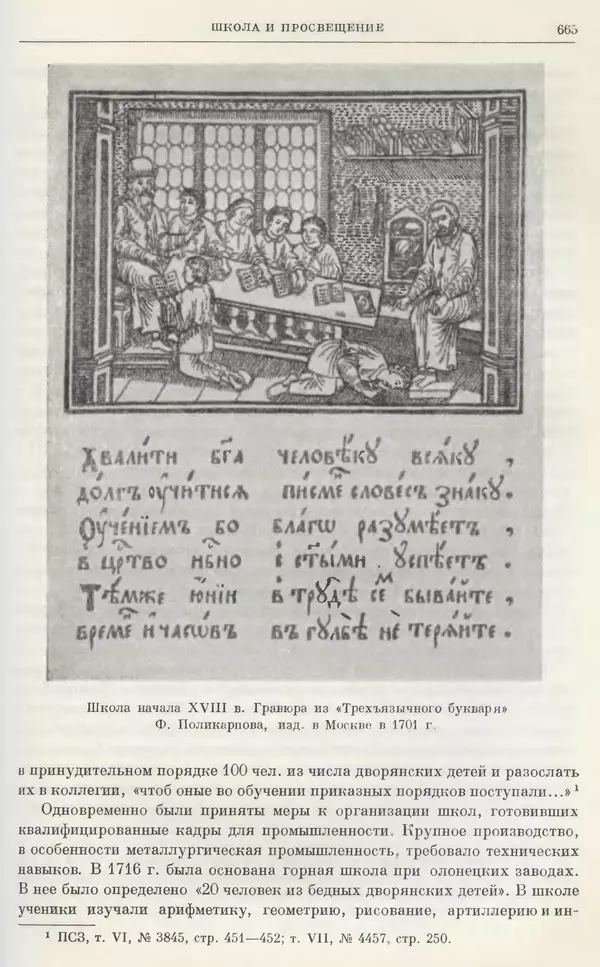 ШКОЛА И ПРОСВЕЩЕНИЕ 665
Хвалити бг҃а человѣкꙋ всѧкꙋ ,
долгъ оучитисѧ писмє словесъ знакꙋ.
Оучєнїємъ бо благѡ разꙋмѣетъ ,
в црⷭ҇тво нбⷭ҇но с ст҃ыми . ꙋспѣетъ .
Тѣмже ю҆нїи в трꙋдѣ сеⷨ бывайте ,
времѐ и҆ часѡвъ въ гꙋлбѣ не терѧйте .
Школа начала XVIII в. Гравюра из «Трехъязычного букваря»
Ф. Поликарпова, изд. в Москве в 1701 г.
в принудительном порядке 100 чел. из числа дворянских детей и разослать
их в коллегии, «чтоб оные во обучении приказных порядков поступали...» ¹
Одновременно были приняты меры к организации школ, готовивших
квалифицированные кадры для промышленности. Крупное производство,
в особенности металлургическая промышленность, требовало технических
навыков. В 1716 г. была основана горная школа при олонецких заводах.
В нее было определено «20 человек из бедных дворянских детей». В школе
ученики изучали арифметику, геометрию, рисование, артиллерию и ин-
¹ ПСЗ, т. VI, № 3845, стр. 451—452; т. VII, № 4457, стр. 250.